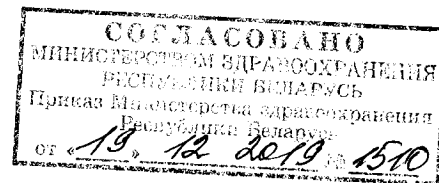 СОГЛАСОВАНО
МИНИСТЕРСТВОМ ЗДРАВООХРАНЕНИЯ
РЕСПУБЛИКИ БЕЛАРУСЬ
Приказ Министерства здравоохранения
Республики Беларусь
от «19» 12 2019 № 1510